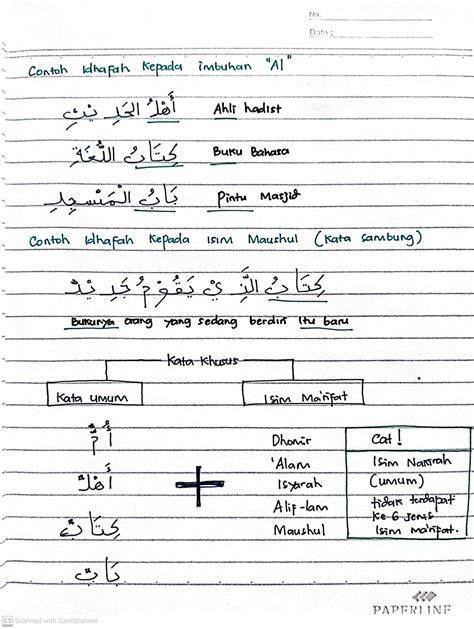 No.
Date :
Contoh Idhafah Kepada imbuhan "Al"
أَهْلُ الحَدِيْثِ Ahli hadist
كِتَابُ اللُّغَةِ Buku Bahasa
بَابُ الْمَسْجِدِ Pintu Masjid
Contoh Idhafah Kepada Isim Maushul (Kata Sambung)
كِتَابُ الَّذِيْ يَقُوْمُ جَدِيْدٌ
Bukunya orang yang sedang berdiri itu baru
Kata Khusus
Kata umum
Isim Ma'rifat
أُمٌّ
أَهْلٌ
كِتَابٌ
بَابٌ
+
Dhomir
'Alam
Isyarah
Alif-lam
Maushul
Cat!
Isim Nakirah
(umum)
tidak terdapat
Ke 6 jenis
Isim ma'rifat.
PAPERLINE
CS Scanned with CamScanner